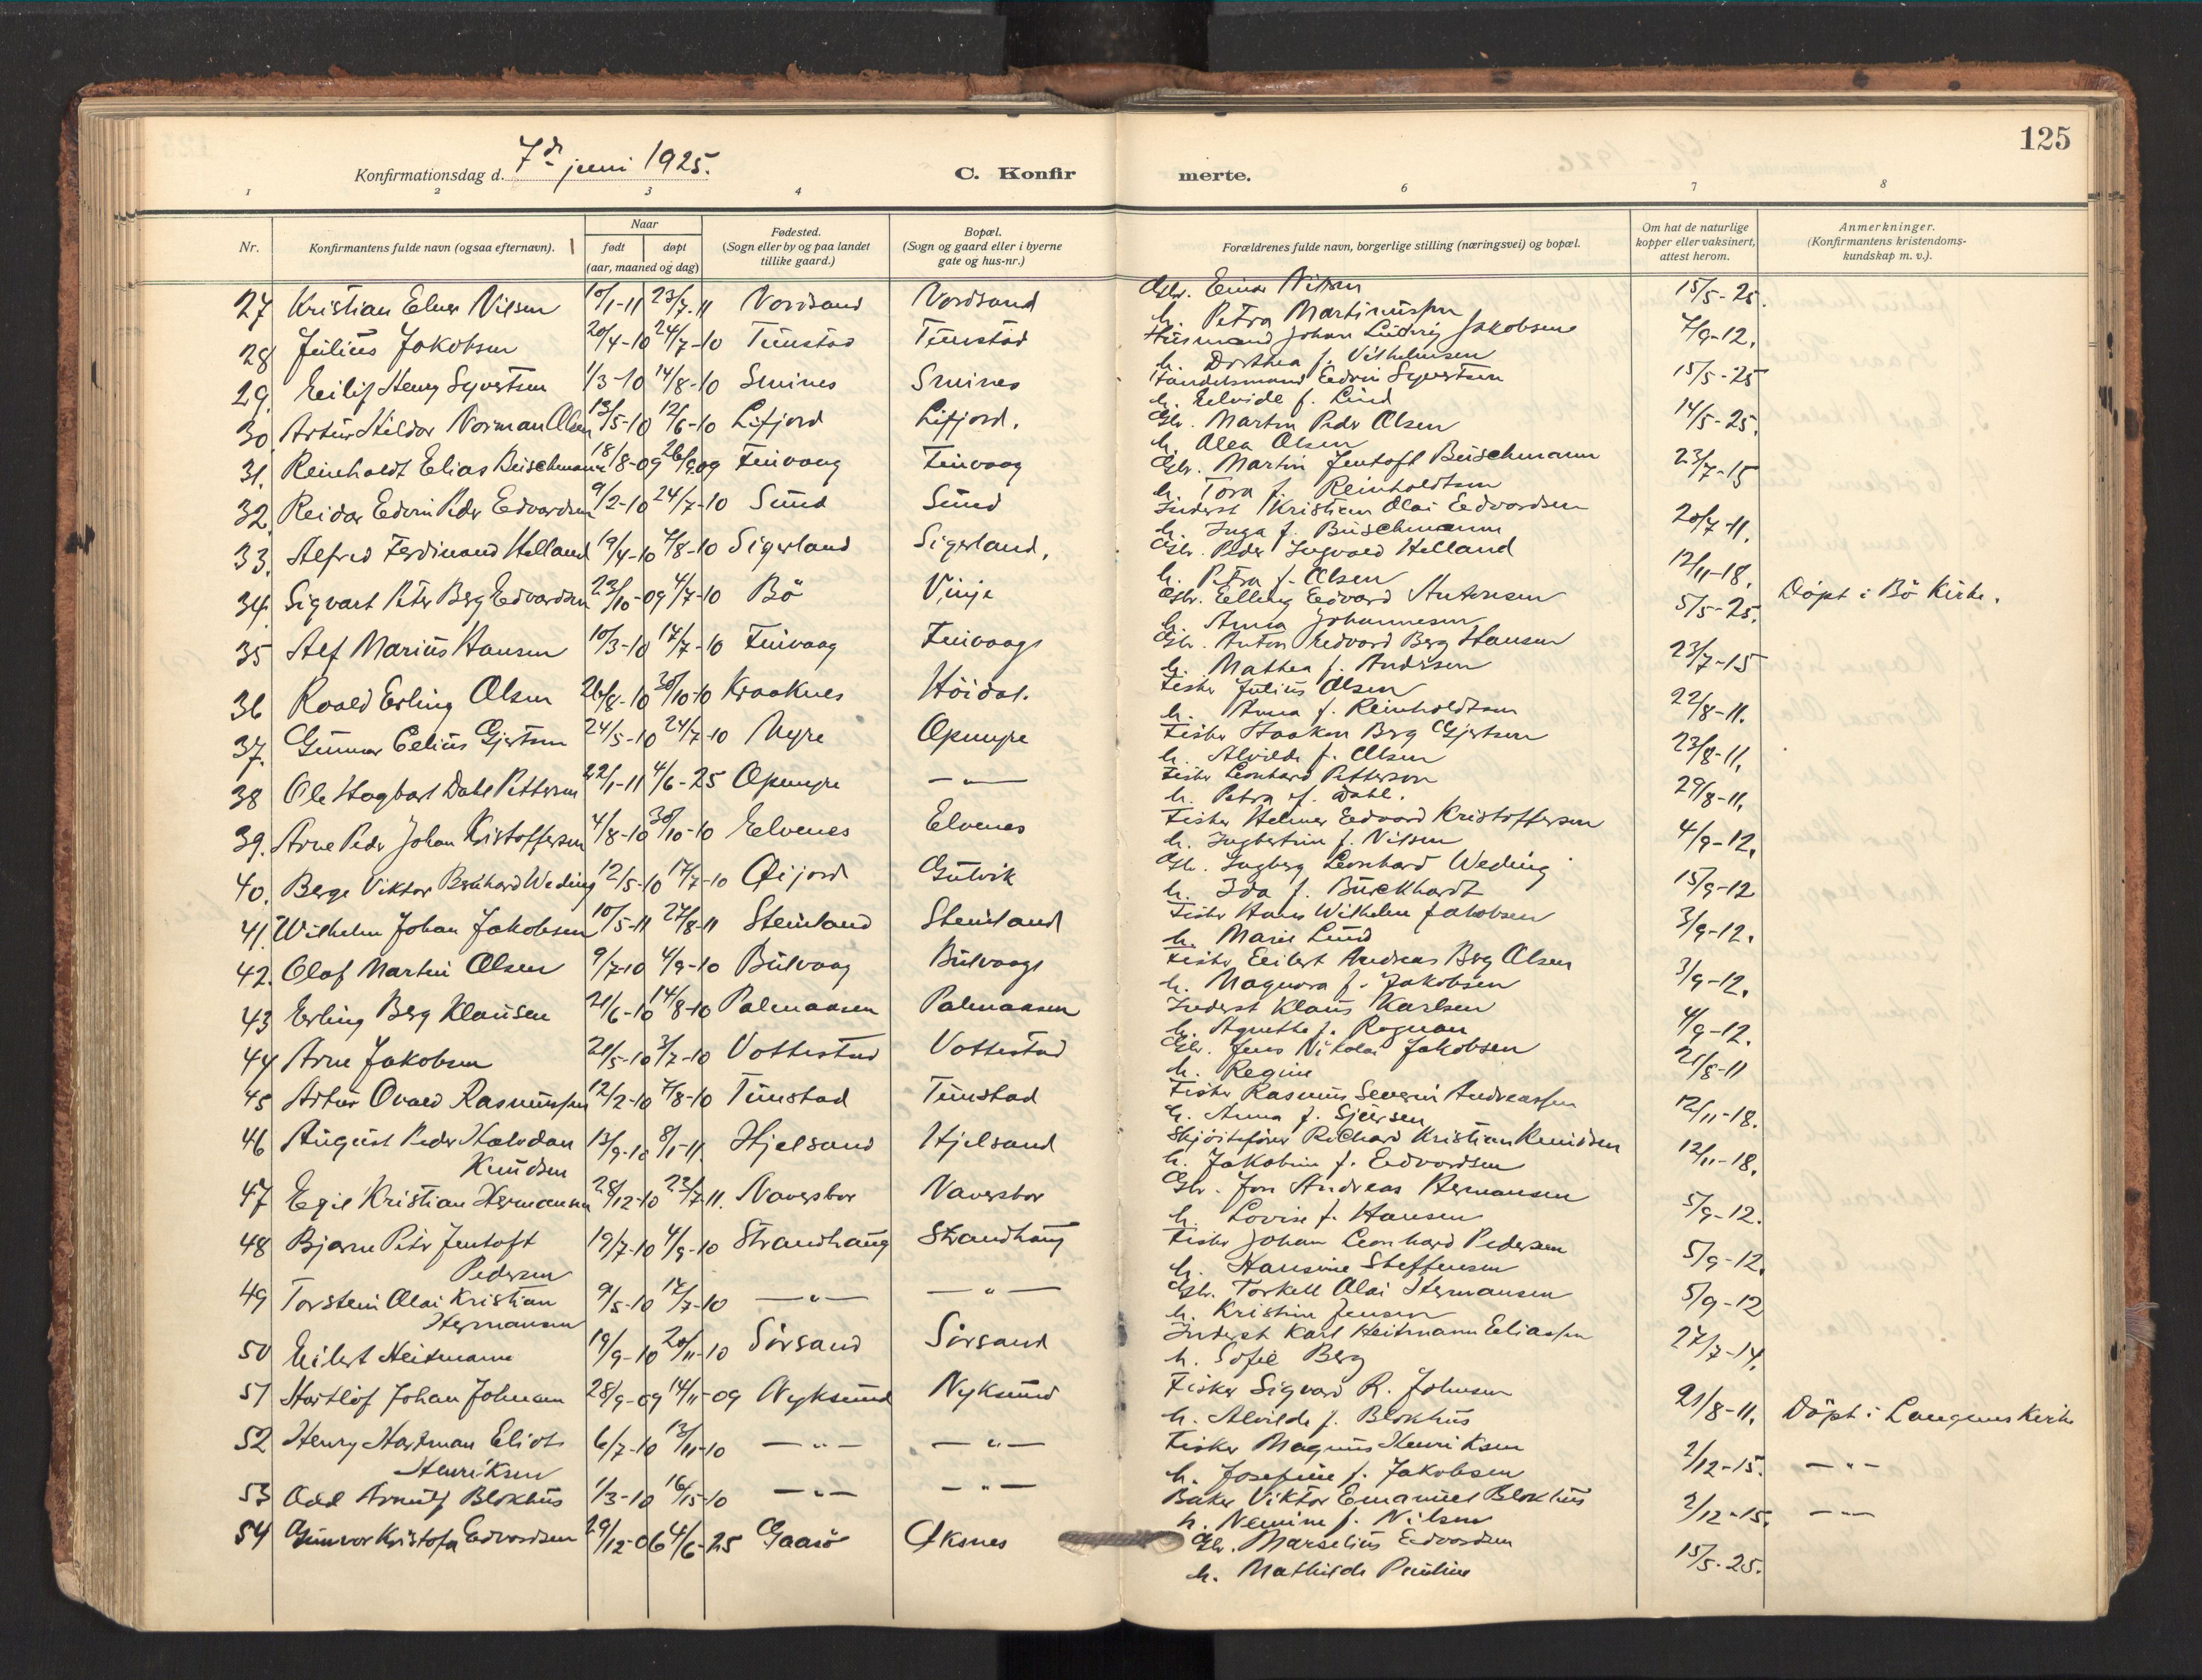 125
Konfirmationsdag d. 7de juni 1925.
C. Konfirmerte.
1 2 3 4 6 7 8
Nr.
Konfirmantens fulde navn (ogsaa efternavn).
Naar
født
døpt
(aar, maaned og dag)
Fødested.
(Sogn eller by og paa landet
tillike gaard.)
Bopæl.
(Sogn og gaard eller i byerne
gate og hus-nr.)
Forældrenes fulde navn, borgerlige stilling (næringsvei) og bopæl.
Om hat de naturlige
kopper eller vaksinert,
attest herom.
Anmerkninger.
(Konfirmantens kristendoms-
kundskap m. v.).
27 Kristian Elner Nilsen 10/1-11 23/7-11 Nordsand Nordsand Gbr. Einar Nilsen 15/5-25.
h. Petra Martinussen
28 Julius Jakobsen 20/4-10 24/7-10 Tunstad Tunstad Husmand Johan Ludvig Jakobsen 7/9-12.
h. Dorthea f. Vilhelmsen
29. Eilif Henry Syvertsen 1/3-10 14/8-10 Smines Smines Handelsmand Edvin Syvertsen 15/5-25
h. Elvide f. Lind
30. Artur Hildor Norman Olsen 13/5-10 12/6-10 Lifjord Lifjord. Gbr. Martin Peder Olsen 14/5-25.
h. Olea Olsen
31. Reinholdt Elias Buschmann 18/8-09 26/9-09 Finvaag Finvaag Gbr. Martin Jentoft Buschmann 23/7-15
h. Tora f. Reinholdtsen
32. Reidar Edvin Peder Edvardsen 9/2-10 24/7-10 Sund Sund Inderst Kristian Olai Edvardsen 20/7-11.
h. Inga f. Buschmann
33. Alfred Ferdinand Helland 19/4-10 7/8-10 Sigerland Sigerland. Gbr. Peder Ingvald Helland 12/11-18.
h. Petra f. Olsen
34. Sigvart Peter Berg Edvardsen 23/10-09 4/7-10 Bö Vinje Gbr. Elling Edvard Antonsen 5/5-25. Döpt i Bö Kirke.
h. Anna Johannesen
35 Alf Marius Hansen 10/3-10 17/7-10 Finvaag Finvaag Gbr. Anton Edvard Berg Hansen 23/7-15
h. Mathea f. Andersen
36 Roald Erling Olsen 26/8-10 30/10-10 Kraaknes Höidal. Fisker Julius Olsen 22/8-11.
h. Anna f. Reinholdtsen
37. Gunnar Celius Gjertsen 24/5-10 24/7-10 Myre Opmyre Fisker Haakon Berg Gjertsen 23/8-11.
h. Alvilde f. Olsen
38 Ole Hagbart Dahl Pettersen 22/1-11 4/6-25 Opmyre — " — Fisker Leonhard Petterson 29/8-11.
h. Petra f. Dahl.
39. Arne Peder Johan Kristoffersen 4/8-10 30/10-10 Elvenes Elvenes Fisker Helmer Edvard Kristoffersen 4/9-12.
h. Ingbertine f. Nilsen
40. Berge Viktor Bernhard Weding 12/5-10 17/7-10 Öijord Gutvik Gbr. Ingberg Leonhard Weding 15/9-12
h. Ida f. Burckhardt
41. Wilhelm Johan Jakobsen 10/5-11 27/8-11 Steinland Steinland Fisker Hans Wilhelm Jakobsen 3/9-12.
h. Marie Lund
42. Olaf Martin Olsen 9/7-10 4/9-10 Bulvaag Bulvaag Fisker Eilert Andreas Berg Olsen 3/9-12.
h. Magnora f. Jakobsen
43 Erling Berg Klausen 21/6-10 14/8-10 Palmaasen Palmaasen Inderst Klaus Karlsen 4/9-12.
h. Agnethe f. Rognan
44 Arne Jakobsen 21/5-10 3/7-10 Vottestad Vottestad Gbr. Jens Nikolai Jakobsen 21/8-11
h. Regine
45 Artur Ovald Rasmussen 12/2-10 7/8-10 Tunstad Tunstad Fisker Rasmus Severin Andreassen 12/11-18.
h. Anna f. Sjursen
46 August Peder Halvdan 13/9-10 8/1-11. Hjelsand Hjelsand Skjöitefører Richard Kristian Knudsen 12/11-18.
Knudsen h. Jakobine f. Edvardsen
47 Egil Kristian Hermansen 28/12-10 23/7-11. Naversbor Naversbor Gbr. Jon Andreas Hermansen 5/9-12.
h. Lovise f. Hansen
48 Bjarne Peter Jentoft 19/7-10 4/9-10 Strandhaug Strandhaug Fisker Johan Leonhard Pedersen 5/9-12.
Pedersen h. Hansine Steffensen
49 Torstein Olai Kristian 9/5-10 17/7-10 — " — — " — Gbr. Torkell Olai Hermansen 5/9-12
Hermansen h. Kristine Jensen
50 Eilert Heitmann 19/9-10 20/11-10 Sörsand Sörsand Inderst Karl Heitmann Eliassen 27/7-14.
h. Sofie Berg
51 Hartlöf Johan Johnsen 28/9-09 14/11-09 Nyksund Nyksund Fisker Sigvard R. Johnsen 21/8-11. Döpt i Langenes Kirke
h. Alvilde f. Blokhus
52 Henry Hartman Eliots 6/7-10 13/11-10 — " — — " — Fisker Magnus Henriksen 2/12-15. — " —
Henriksen h. Josefine f. Jakobsen
53 Odd Arnulf Blokhus 1/3-10 16/15-10 — " — — " — Baker Viktor Emanuel Blokhus 2/12-15. — " —
h. Nemine f. Nilsen
54 Gunvor Kristofa Edvardsen 29/12-06 4/6-25 Gaasö Öksnes Gbr. Marselius Edvardsen 15/5-25.
h. Mathilde Pauline